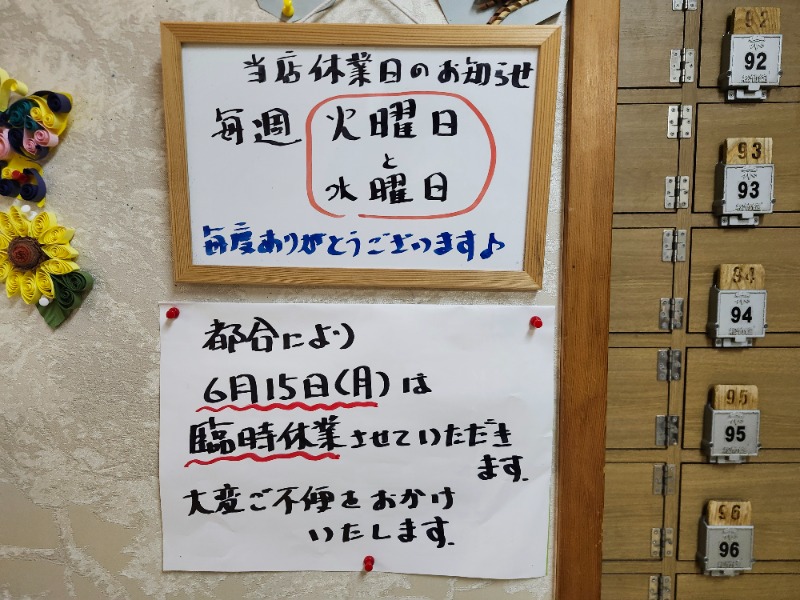 当店休業日のお知らせ
毎週 火曜日
と
水曜日
毎度ありがとうございます♪
都合により
6月15日(月)は
臨時休業させていただき
ます.
大変ご不便をおかけ
いたします.
92
92
93
93
94
94
95
95
96
96